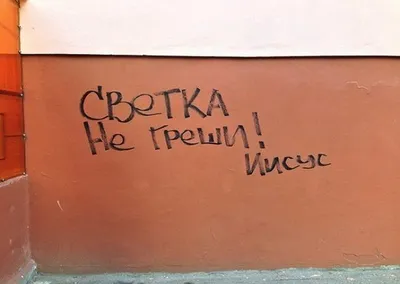 СВеТКА
Не ГРеши!
Иисус